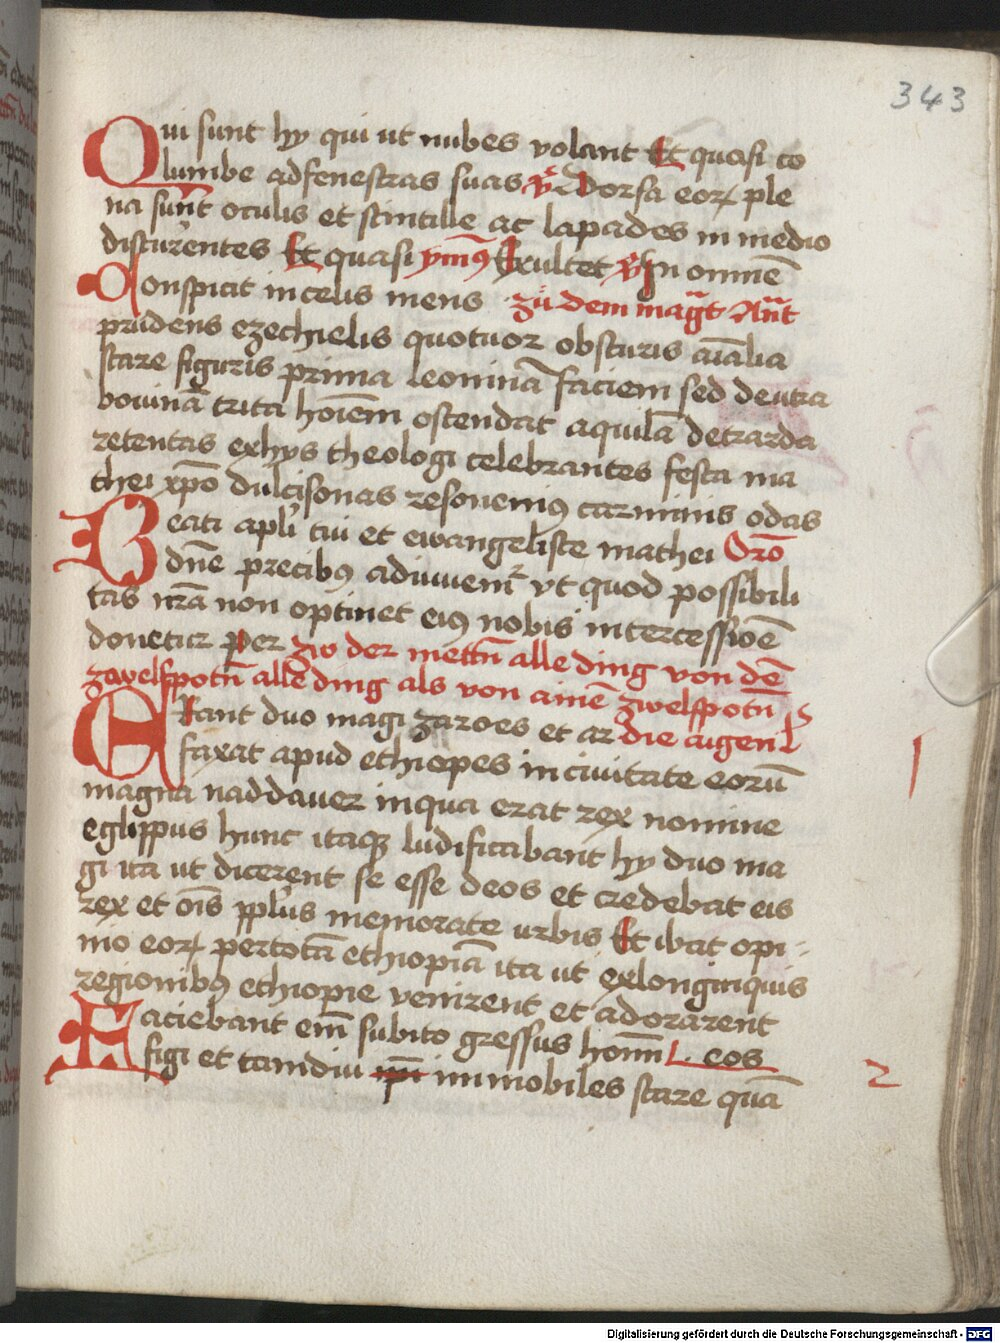 343
Qui sunt hy qui ut nubes volant Et quasi co
lumbe ad fenestras suas v̾ Dorsa eoꝝ ple
na sunt oculis et scintille ac lapades in medio
discurrentes Et quasi ymꝰ Exultet v̾ In omnē
Conspicit in celis mens zů dem mag̅t An̅t
prudens ezechielis quotuor obscuris aīalia
stare figuris prima leoninā faciem sed deutra
bouinā trita hoīem ostendat aquilā detrarda
retentas ex hys theologi celebrantes festa ma
thei xp̄o dulcisonas resonemꝰ carminis odas
Beati apl̄i tui et ewangeliste mathei Oro̅
dn̄e precibꝰ adiuuemꝛ vt quod possibili
tas nr̄a non optinet eiꝰ nobis intercessioē
donetur per zw der mettn̄ alle ding von dē
zwelfpotn̄ alle ding als von ainē zwelfpotn̄
Erant duo magi zaroes et ar die aigen ls
faxat apud ethiopes in ciuitate eorū
magna naddauer in qua erat rex nomine
eglippus hunc itaqꝫ ludificabant hy duo ma
gi ita ut dicerent se esse deos et credebat eis
rex et om̄s ppl̄us memorate urbis Et ibat opi-
nio eoꝝ per totā ethiopiā ita ut ex longinquis
regionibꝰ ethiopie venirent et adorarent
Faciebant em̄ subito gressus homī L eos
figi et tamdiu ip̄i immobiles stare quā
1
2
Digitalisierung gefördert durch die Deutsche Forschungsgemeinschaft - DFG